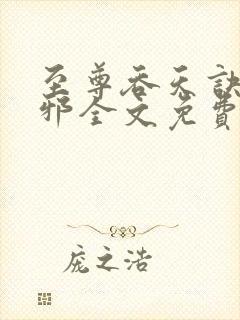 至尊吞天訣
邪全文免費
庞之浩